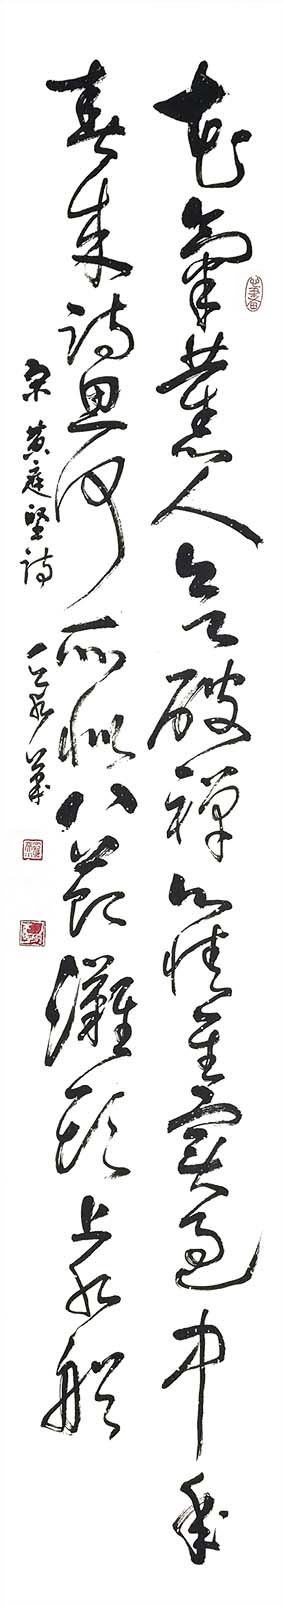 花氣薰人欲破禪心情其實過中年
春來詩思何所似八節灘頭上水船
宋黄庭堅詩